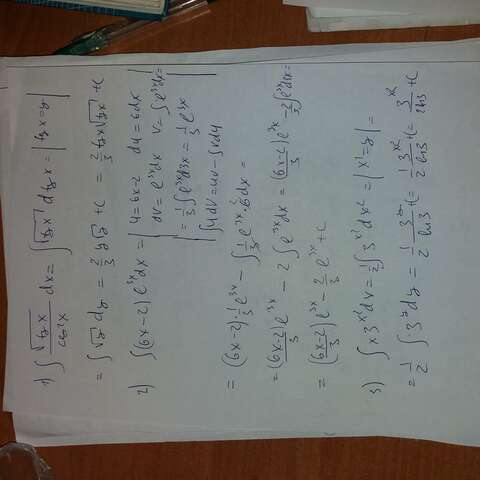 1) ∫ √(tg x)/cos²x dx = ∫ √(tg x) d tg x = | tg x = y |
= ∫ √y dy = 2/3 y√y + c = 2/3 tg x √(tg x) + c
2) ∫ (6x-2) e^(3x) dx = | u = 6x-2 du = 6dx
dv = e^(3x) dx v = ∫ e^(3x) dx =
= 1/3 ∫ e^(3x) d3x = 1/3 e^(3x)
∫ u dv = uv - ∫ v du |
= (6x-2)·1/3 e^(3x) - ∫ 1/3 e^(3x)·6 dx =
= (6x-2)/3 e^(3x) - 2 ∫ e^(3x) dx = (6x-2)/3 e^(3x) - 2/3 ∫ e^(3x) d3x =
= (6x-2)/3 e^(3x) - 2/3 e^(3x) + c
3) ∫ x 3^(x²) dx = 1/2 ∫ 3^(x²) dx² = | x² = y | =
= 1/2 ∫ 3^y dy = 1/2 3^y/ln 3 + c = 1/2 3^(x²)/ln 3 + c = 3^(x²)/2 ln 3 + c